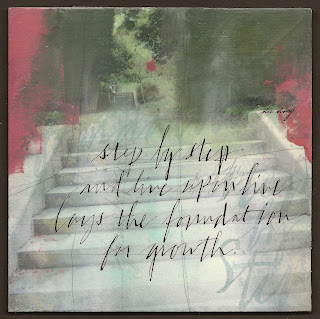 step by step,
and line upon line
lays the foundation
for growth.